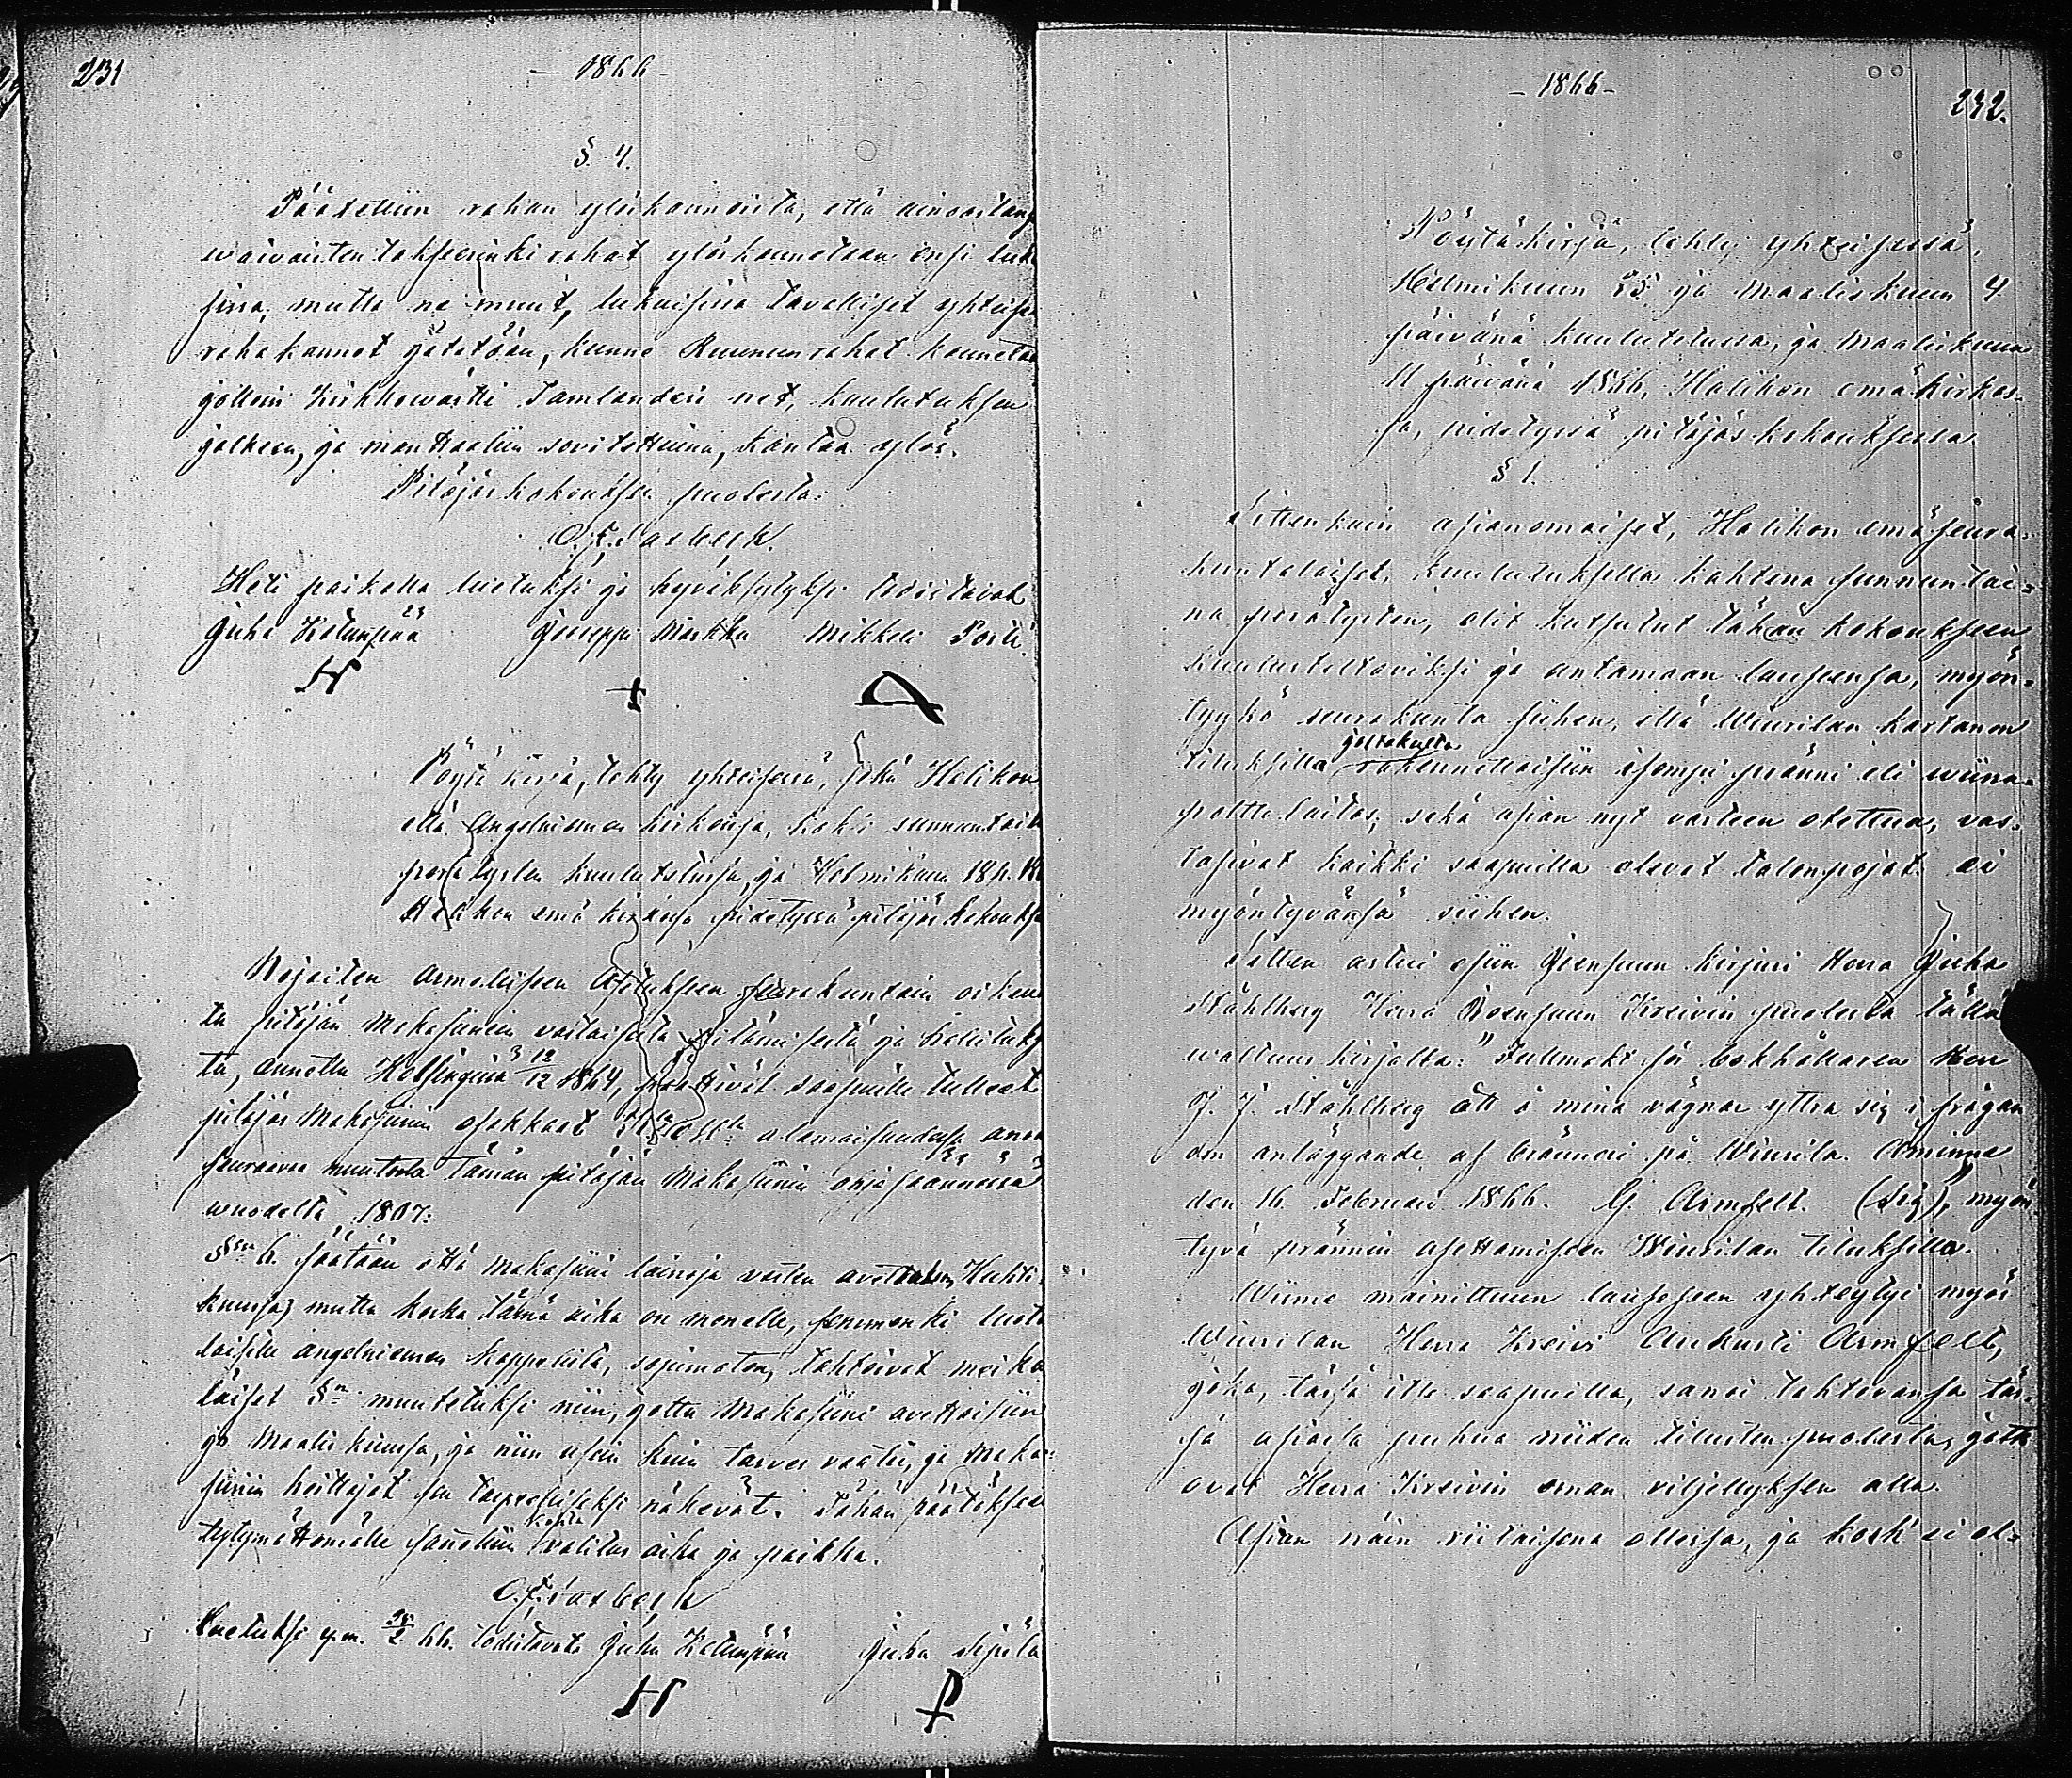 231
- 1866 -
§. 4.
Päätettiin rahan ylöskannoista, että ainoastans
waivaisten taksierinki rahat ylöskannetaan ensi luk
sissa, mutta ne muut, lukusissa tavalliset yhteiset
rahakannot jätetään, kunne Ruunun rahat kannetaan
jolloin Kirkkowärtti Tamlander net, kuulutuksen
jälkeen, ja manttaaliin sovitettuina, kantaa ylös.
Pitäjäs kokouksen puolesta:
O. F. Dasbergh.
Heti paikalla luetuksi ja hyväksytyksi todistavat
Juha Ketunpää Jooseppi Markku Mikkeli Portti.
H + A
Pöytä kirja, tehty yhteisessä, sekä Halikon
että Angelniemen kirkoissa, kaksi sunnuntaita
perätysten kuulutetussa, ja Helmikuun 18 p. 18
Halikon emä kirkossa pidetyssä pitäjäs kokouksessa
Nojaiten armolliseen Asetukseen seurakuntain oikeu
ta pitäjän Makasiinein vastaisesta pitämisestä ja hoitotuks
ta, annettu Helsingissä 12/12 1864, päättivät saapuille tulleet
pitäjäs Makasiinin osakkaat alamaisuudessa anoa
seuraavaa muutosta tämän pitäjän Makasiinin ohjesäännössä
wuodelta 1807:
§ssa 6. säätään että makasiini lainoja varten avataan Huhti-
kuussa; mutta koska tämä aika on monelle, semmenki luoto
laisille angelniemen kappelista, sopimaton, tahtoivat meika
läiset §n muutetuksi niin, jotta Makasiini avattaisiin
jo Maalis kuussa, ja niin usein kuin tarves vaatii, ja Maka-
siinin hoitajat sen tarpeelliseksi näkevät. Tähän päätökseen
tytymättömälle sanottiin kohta valitus aika ja paikka.
O. F. Dasbergh
Luetuksi y.m. 25/2 66. todistavat Juha Ketunpää Juha Sipilä
H P
- 1866 -
232.
Pöytäkirja, tehty yhteisessä,
Helmikuun 25 ja Maaliskuun 4
päivänä kuulutetussa, ja Maaliskuun
11 päivänä 1866, Halikon emäkirkos-
sa, pidetyssä pitäjäs kokouksessa.
§ 1.
Sittenkuin asianomaiset, Halikon emäseura-
kuntalaiset, kuulutuksella kahtena sunnuntai-
na perätysten, olit kutsutut tähän kokoukseen
kuulusteltaviksi ja antamaan lauseensa, myön-
tyykö seurakunta siihen, että Wiurilan kartanon
tiluksilla jostakusta rakennettaisiin isompi pränni eli wiina-
poltto laitos; sekä asian nyt varteen otettua, vas-
tasivat kaikki saapuilla olevat talonpojat ei
myöntyvänsä siihen.
Sitten astui esiin Joensuun kirjuri Herra Juha
Ståhlberg Herra Joensuun Kreivin puolesta tällä
waltuus kirjalla: "Fullmakt för bokhållaren Herr
J. J. Ståhlberg att å mina vägnar yttra sig i frågan
om anläggande af bränneri på Wiurila. Åminne
den 16. Februari 1866. G. Armfelt. (Sig)", myön-
tyvä prännin asettamiseen Wiurilan tiluksilla.
Wiime mainittuun lauseseen yhteytyi myös
Wiurilan Herra Kreivi Aukusti Armfelt,
joka, tässä itse saapuilla, sanoi tahtovansa täs-
sä asiassa puhua niiden tilusten puolesta, jotka
ovat Herra Kreivin oman viljellyksen alla.
Asian näin riitaisena ollessa, ja kosk' ei ol-